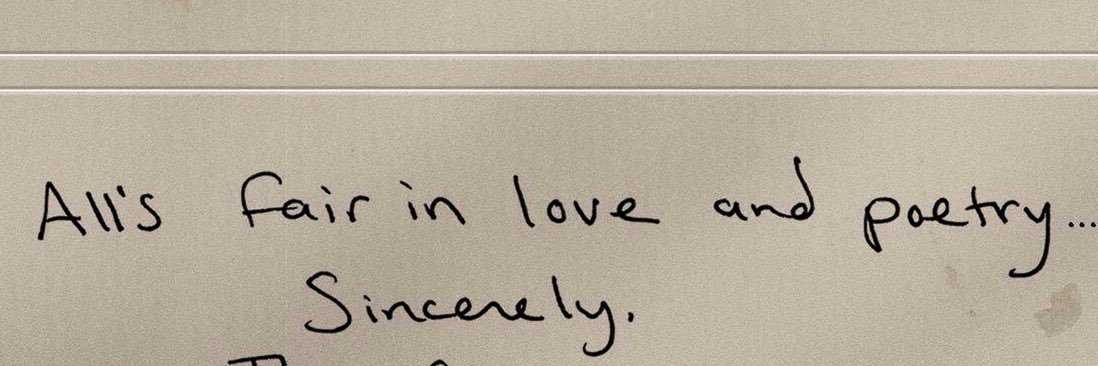 All's fair in love and poetry...
Sincerely.